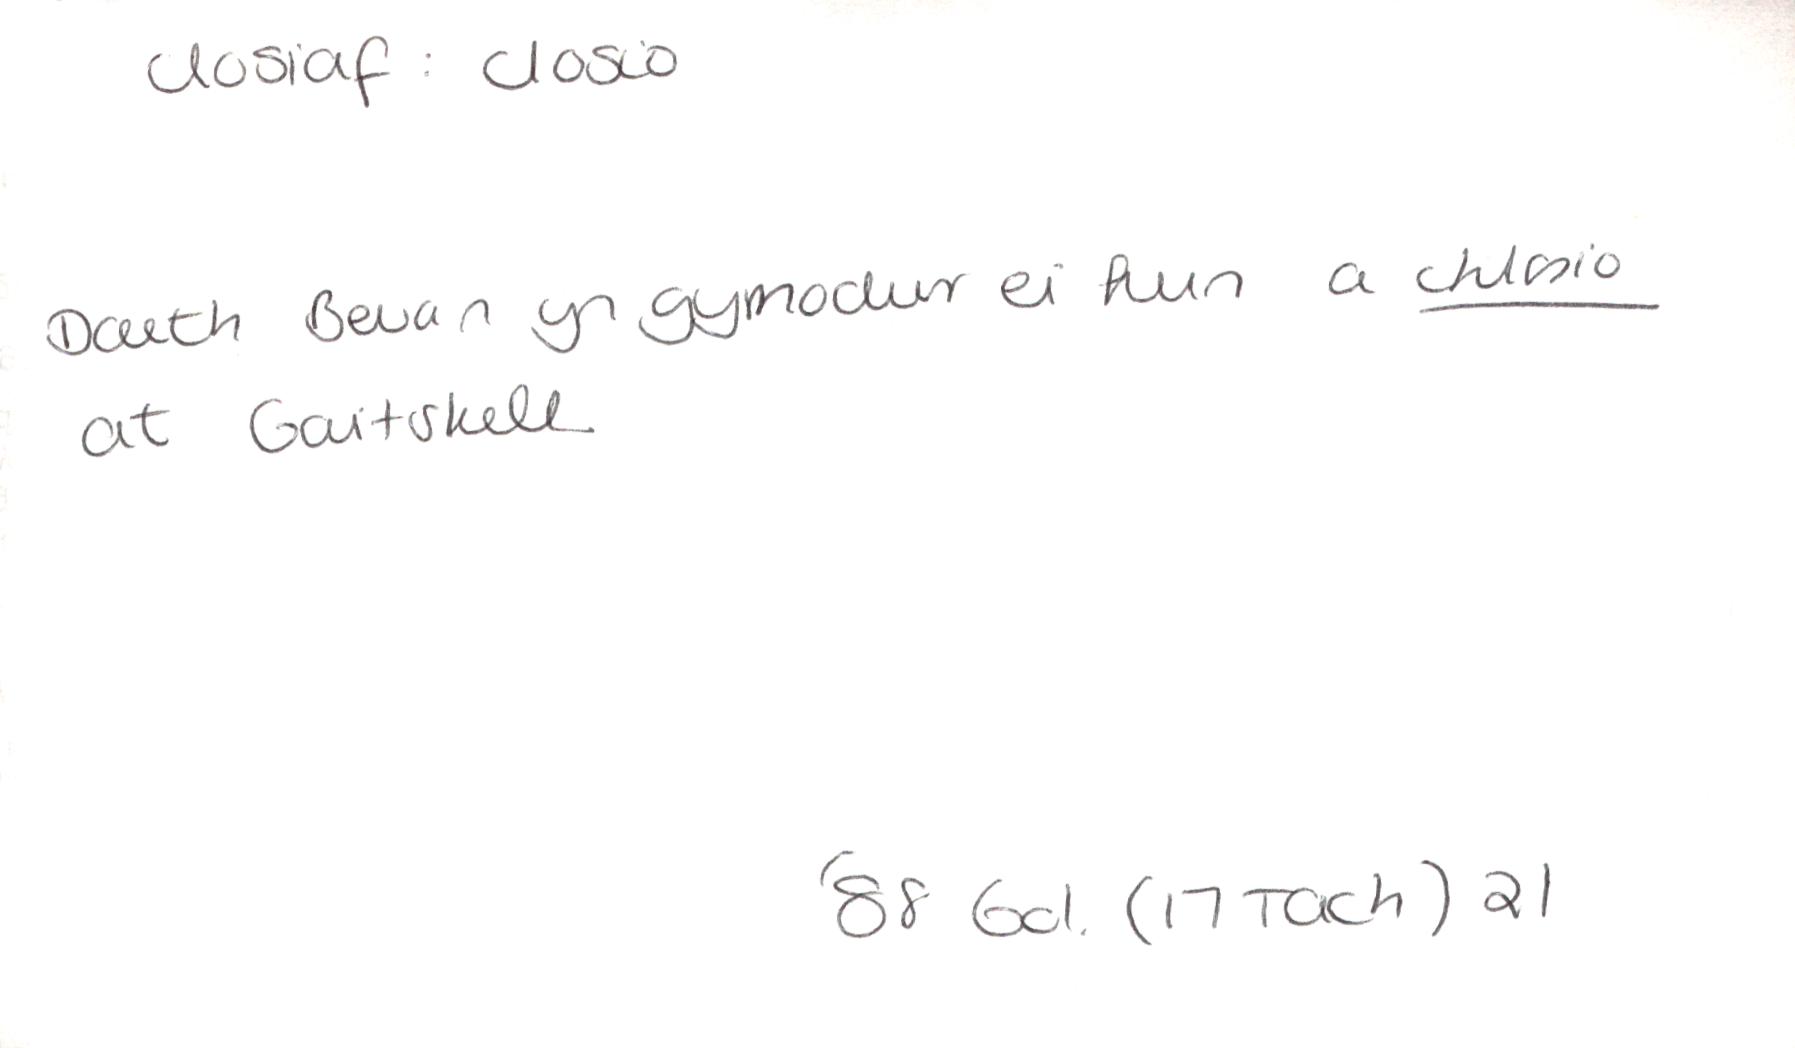 closiaf : closio
Daeth Bevan yn gymodwr ei hun a chlosio
at Gaitskell
'88 Gol. (17 Tach) 21